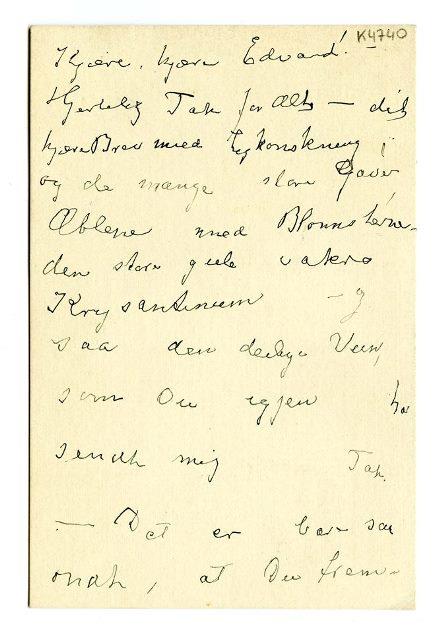 K4740
Kjære, kjære Edvard! –
Hjertelig Tak for Alt – dit
kjære Brev med Lykønskning
og de mange store Gaver,
Æblene med Blomsterne –
den store gule vakre
Krysantimum – og
saa den deilige Vin,
som Du igjen har
sendt mig Tak.
– Det er bare saa
ondt, at Du frem-